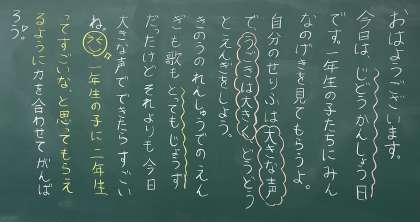 おはようございます。
今日は、じどうかんしょう日
です。一年生の子たちにみん
なのげきを見てもらうよ。
自分のせりふは大きな声
で、うごきは大きくどうどう
とえんぎをしよう。
きのうのれんしゅうでのえん
ぎも歌もとってもじょうず
だったけどそれよりも今日
大きな声でできたらすごい
ね。一年生の子に二年生
ってすごいな、と思ってもらえ
るように力を合わせてがんば
ろう。